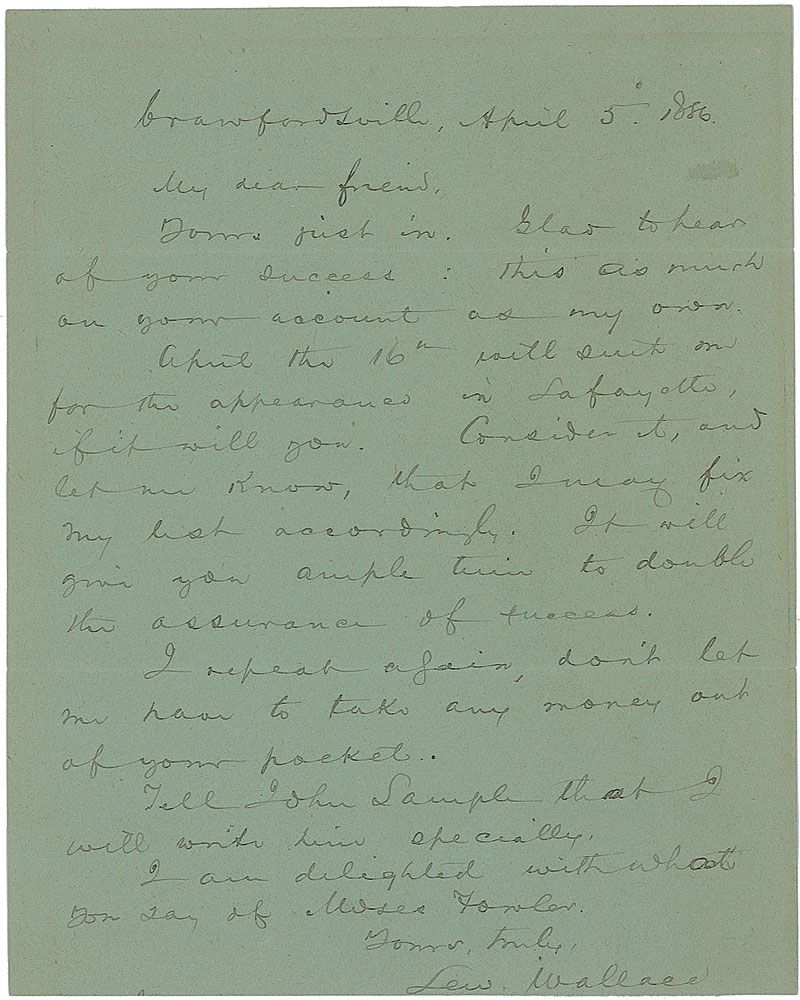 Crawfordsville, April 5. 1886.
My dear friend,
Yours just in. Glad to hear
of your success: this as much
on your account as my own.
April the 16th will suit me
for the appearance in Lafayette,
if it will you. Consider it, and
let me know, that I may fix
my list accordingly. It will
give you ample time to double
the assurance of success.
I repeat again, don't let
me have to take any money out
of your pocket.
Tell John Sample that I
will write him specially.
I am delighted with what
you say of Moses Fowler.
Yours, truly,
Lew. Wallace